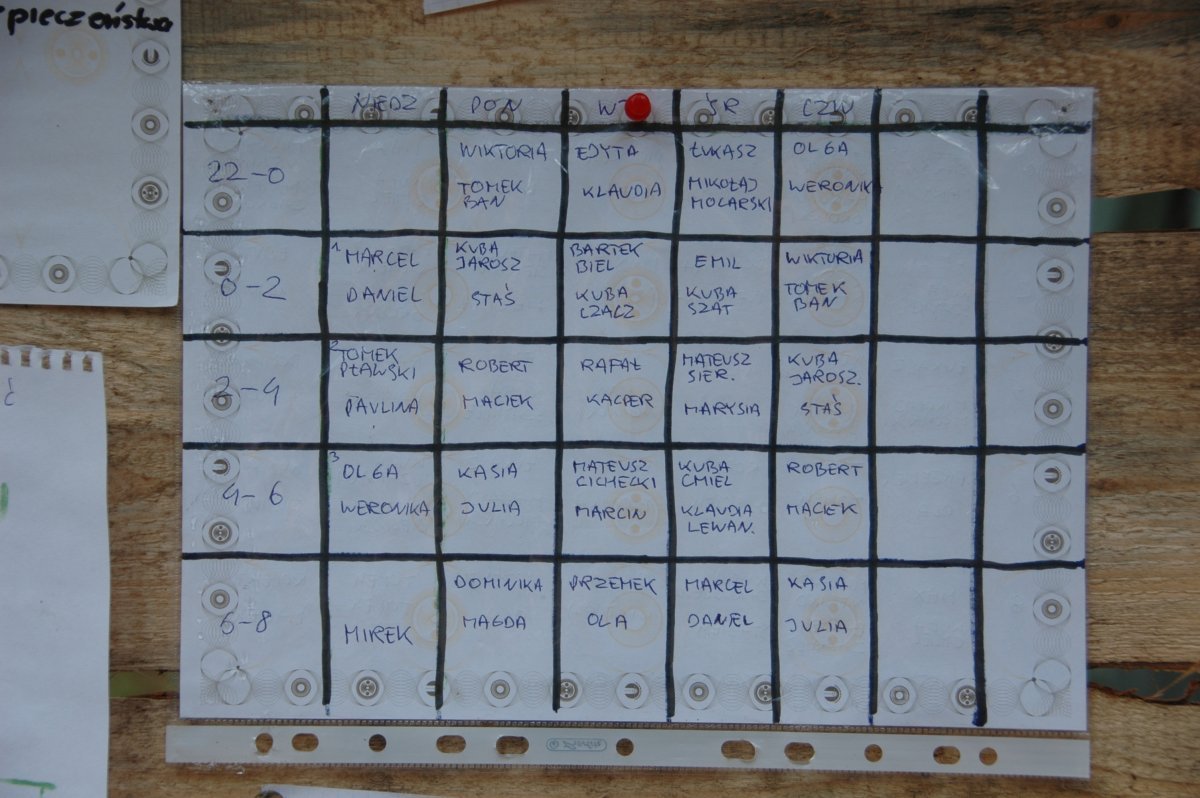 pieczeństwa
NIEDZ PON ŚR CZW
22-0 WIKTORIA EDYTA ŁUKASZ OLGA
TOMEK BAN KLAUDIA MIKOŁAJ MOCARSKI WERONIKA
0-2 1 MARCEL KUBA JAROSZ BARTEK BIEL EMIL WIKTORIA
DANIEL STAŚ KUBA CZACZ KUBA SZAT TOMEK BAN
2-4 2 TOMEK PŁAWSKI ROBERT RAFAŁ MATEUSZ SIER. KUBA JAROSZ.
PAVLINA MACIEK KACPER MARYSIA STAŚ
4-6 3 OLGA KASIA MATEUSZ CICHECKI KUBA CMIEL ROBERT
WERONIKA JULIA MARCIN KLAUDIA LEWAN. MACIEK
6-8 DOMINIKA PRZEMEK MARCEL KASIA
MIREK MAGDA OLA DANIEL JULIA